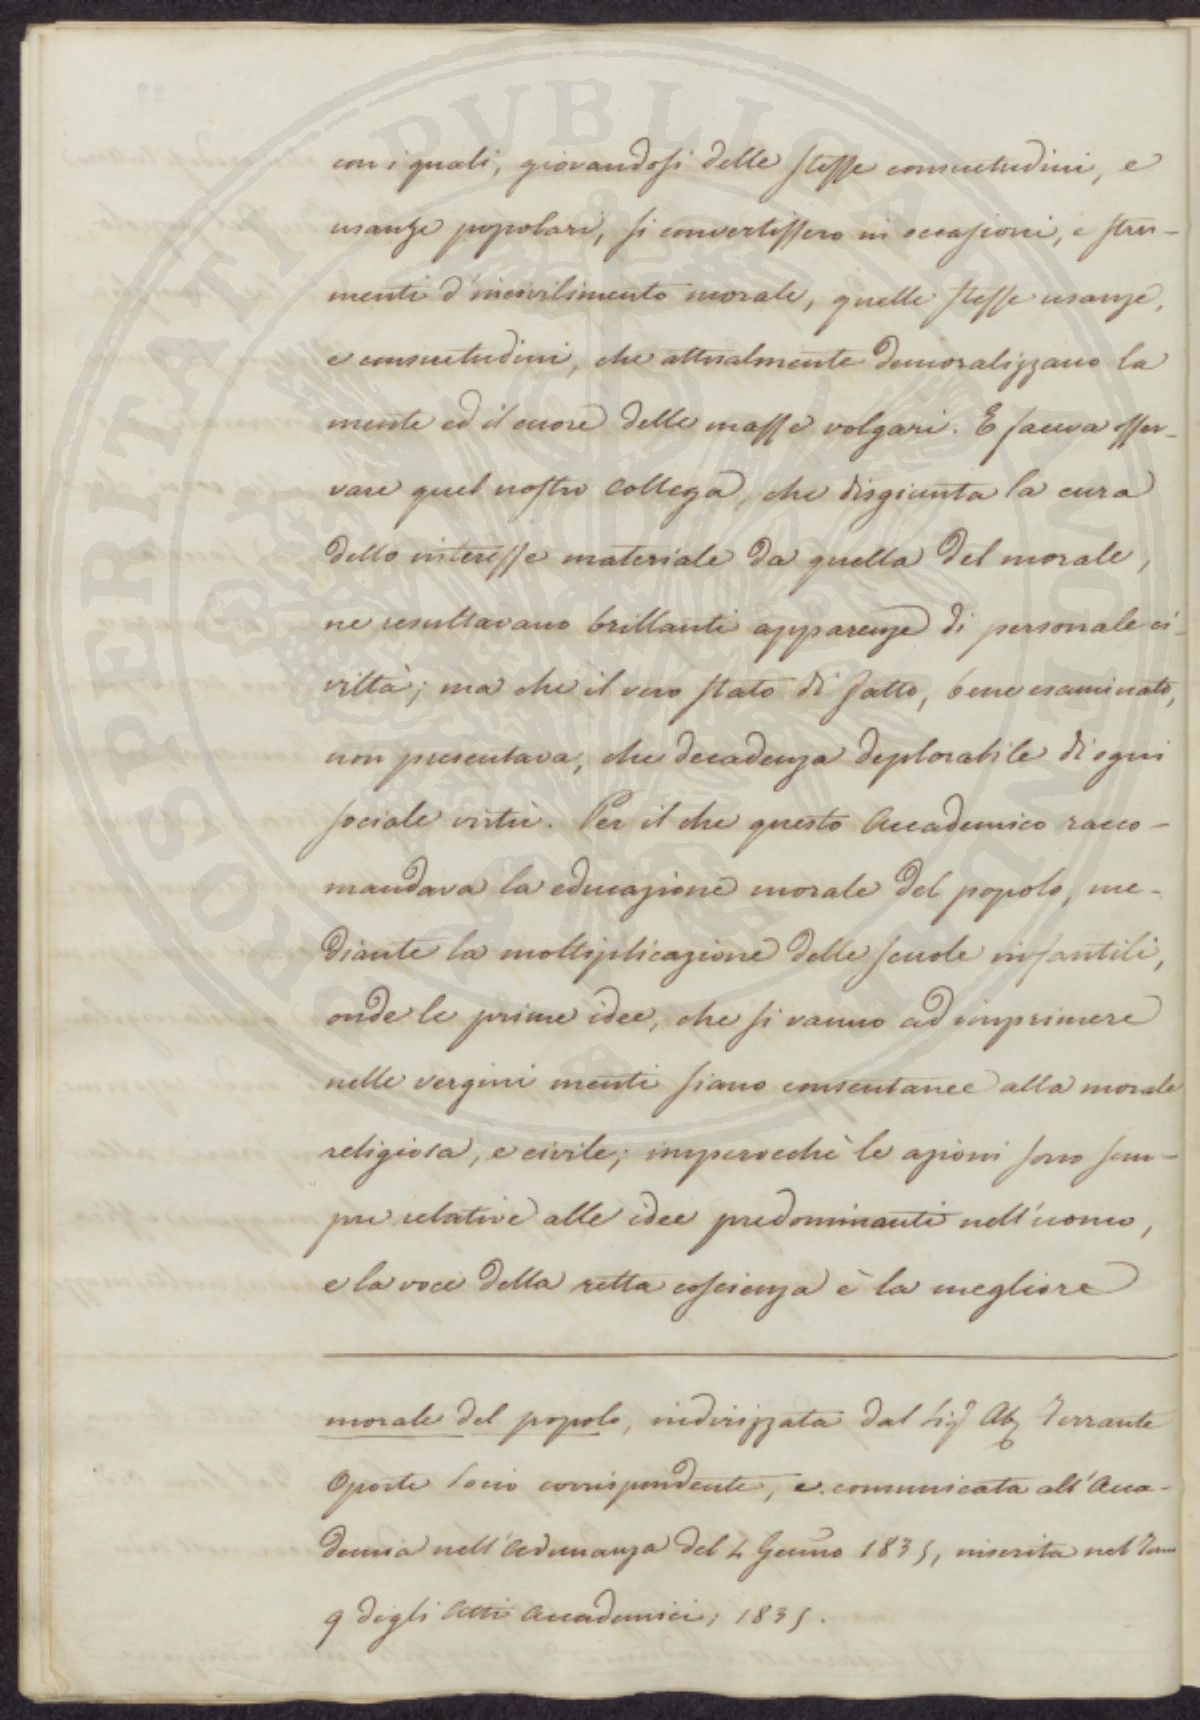 con i quali, giovandosi delle stesse consuetudini, e
usanze popolari, si convertissero in occasioni, e stru-
menti d'incivilimento morale, quelle stesse usanze,
e consuetudini, che attualmente demoralizzano la
mente ed il cuore delle masse volgari. E faceva osser-
vare quel nostro Collega, che disgiunta la cura
dello interesse materiale da quella del morale,
ne resultavano brillanti apparenze di personale ci-
viltà; ma che il vero stato di fatto, bene esaminato,
non presentava, che decadenza deplorabile di ogni
sociale virtù. Per il che questo Accademico racco-
mandava la educazione morale del popolo, me-
diante la moltiplicazione delle scuole infantili,
onde le prime idee, che si vanno ad imprimere
nelle vergini menti siano consentanee alla morale
religiosa, e civile; imperocchè le azioni sono sem-
pre relative alle idee predominanti nell'uomo,
e la voce della retta coscienza è la megliore
morale del popolo, indirizzata dal Sig. Ab. Ferrante
Aporti Socio corrispondente, e comunicata all'Acca-
demia nell'Adunanza del 4 Genno 1835, inserita nel Tomo
9 degli Atti Accademici, 1835.
PROSPERITATI PUBLICAE AUGENDAE